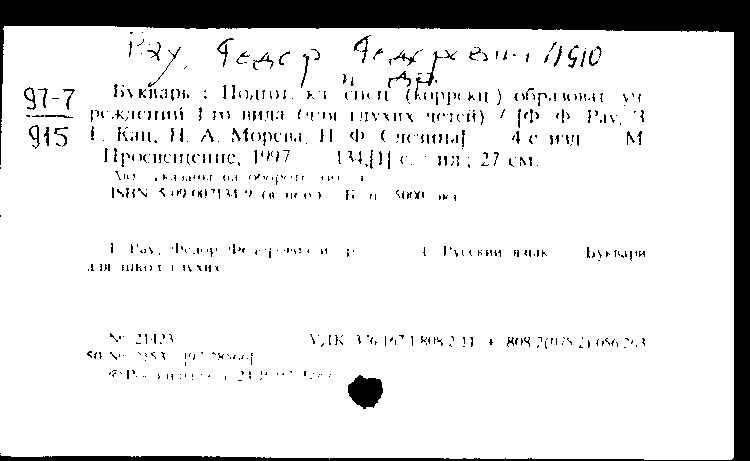 Рау, Федор Федорович /1910
и др.
97-7
915
Букварь : Подгот. кл. спец. (коррекц.) образоват. уч-
реждений I-го вида (для глухих детей) / [Ф. Ф. Рау, З.
Г. Кац, Н. А. Морева, Н. Ф. Слезина]. 4-е изд. М.
Просвещение, 1997 134,[1] с. : ил ; 27 см.
Авт. указаны на обороте тит. л.
ISBN 5-09-007134-9 (в пер.) Б. ц. 5000 экз.
1. Рау, Федор Федорович и др. 1. Русский язык Буквари
для школ глухих
№ 21423 УДК
50 №